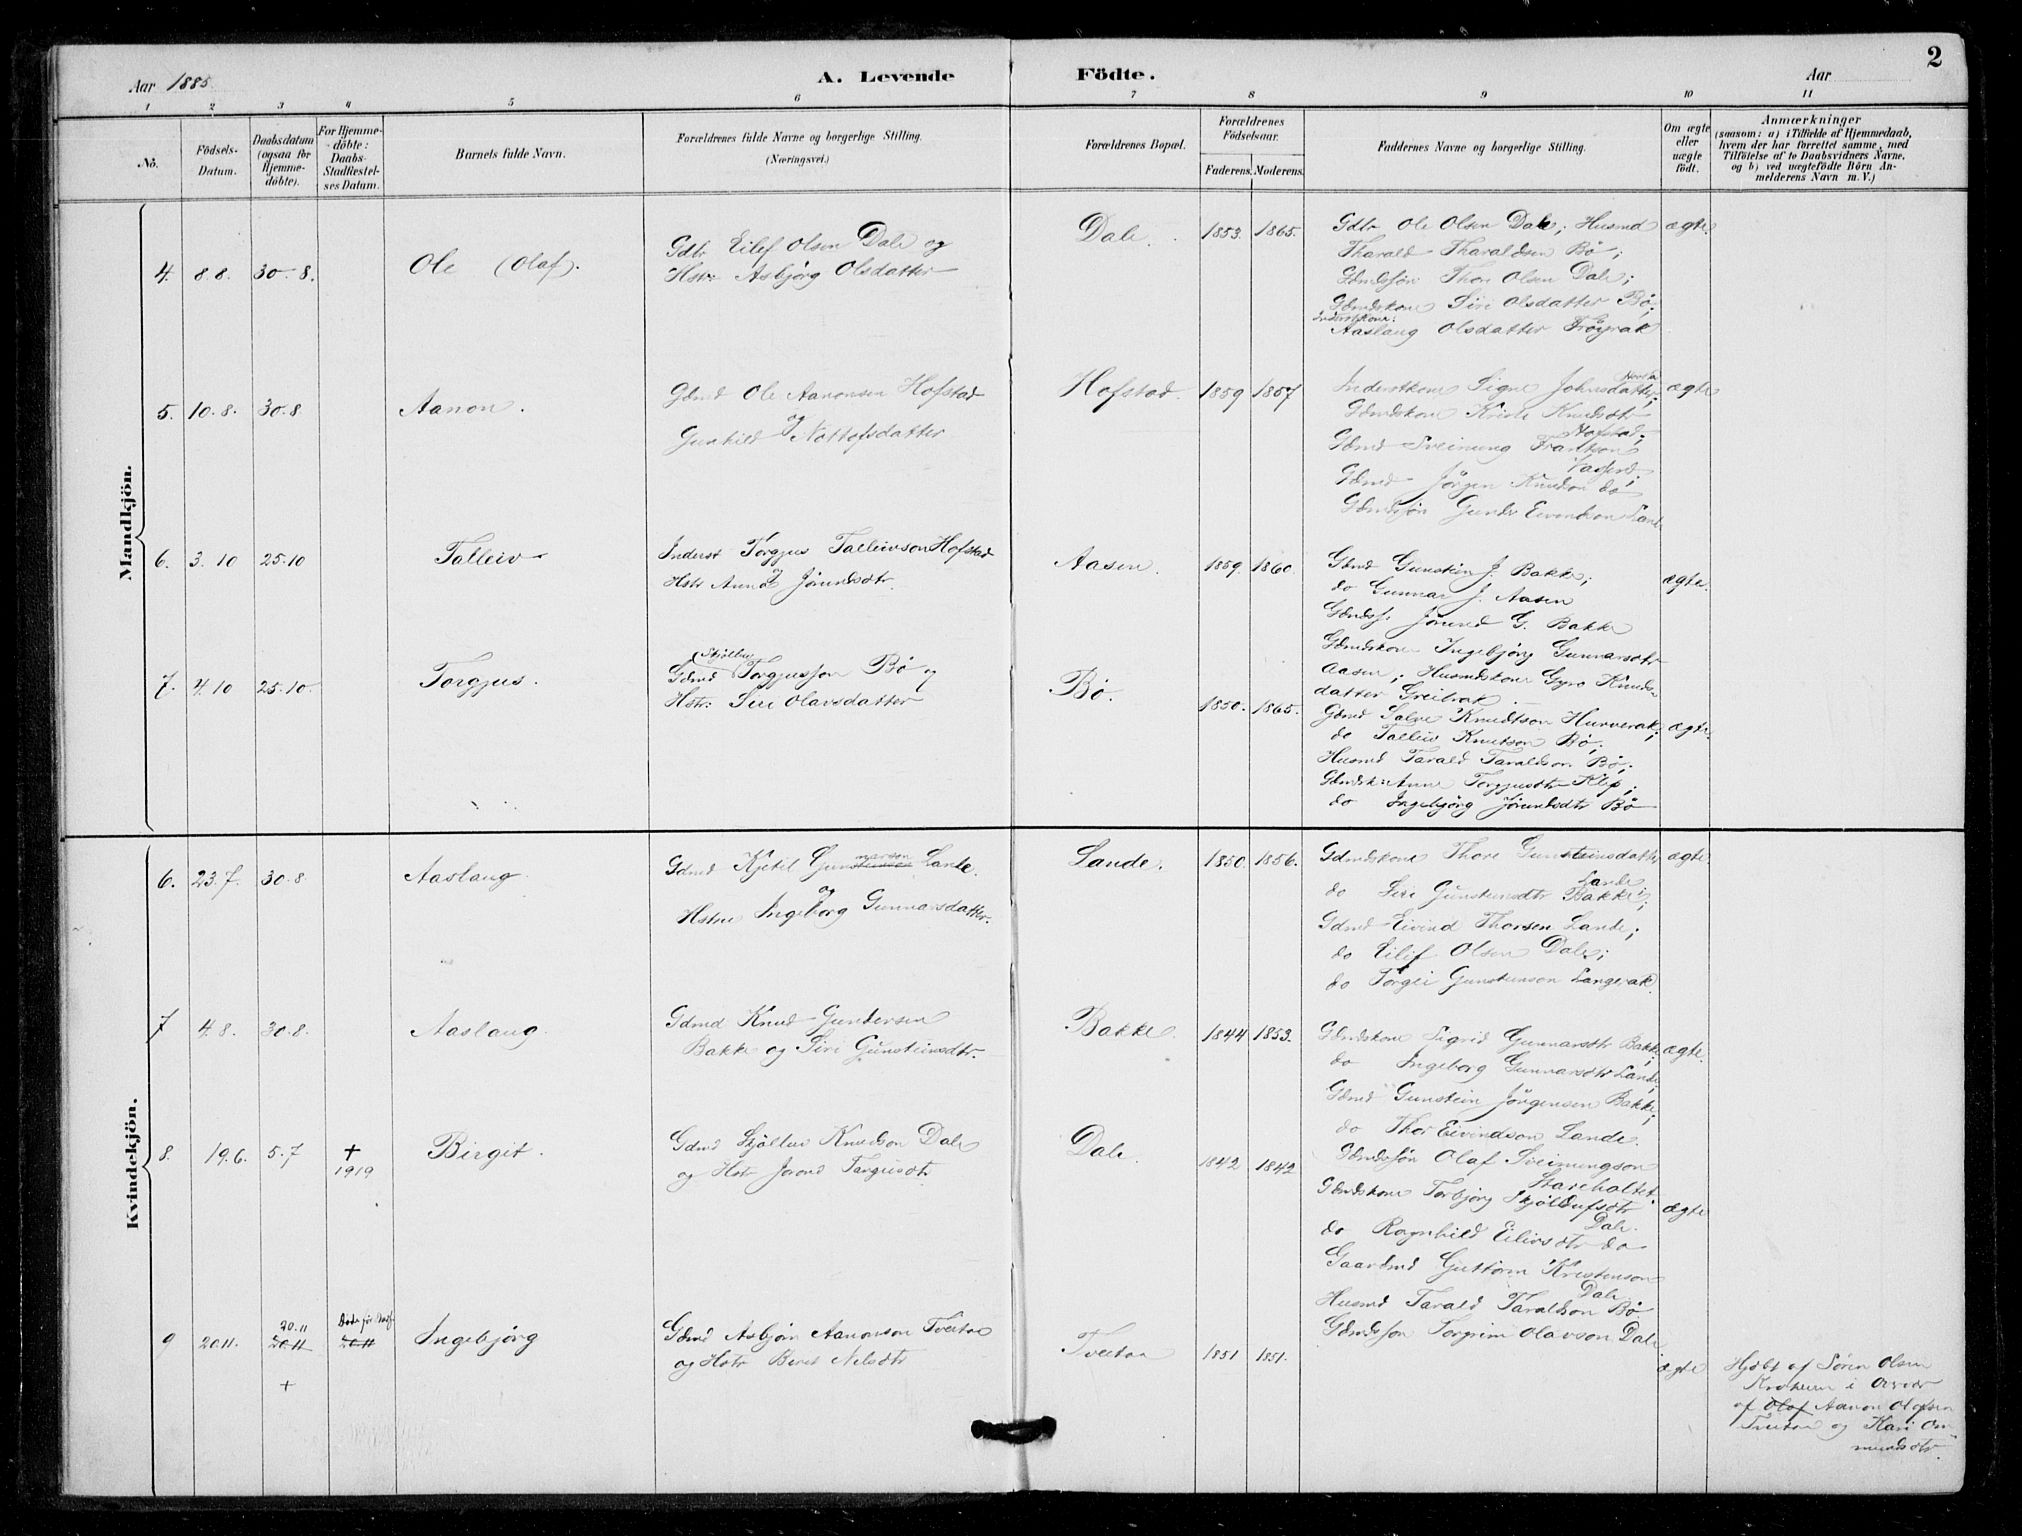 Aar 1885.
A. Levende
Födte.
Aar
2
1 2 3 4 5 6 7 8 9 10 11
No.
Födsels-
Datum.
Daabsdatum
(ogsaa for
Hjemme-
döbte).
For Hjemme-
döbte:
Daabs-
Stadfæstel-
ses Datum.
Barnets fulde Navn.
Forældrenes fulde Navne og borgerlige Stilling.
(Næringsvei.)
Forældrenes Bopæl.
Forældrenes
Födselsaar.
Faderens. Moderens.
Faddernes Navne og borgerlige Stilling.
Om ægte
eller
uægte
födt.
Anmærkninger
(saasom: a) i Tilfælde af Hjemmedaab,
hvem der har forrettet samme, med
Tilföielse af to Daabsvidners Navne,
og b) ved uægtefödte Börn An-
melderens Navn m. V.)
Mandkjön.
4. 8.8. 30-8. Ole (Olaf).
Gdbr Eilef Olsen Dale og
Hstr: Asbjörg Olsdatter
Dale. 1853. 1865.
Gdbr Ole Olsen Dale; Husmd
Tharald Tharaldsen Bö;
Gdmdssön Thore Olsen Dale;
Gdmdskone Siri Olsdatter Bö;
Inderstkone:
Aaslaug Olsdatter Fröyrak
ægte.
5. 10.8. 30.8 Aanon.
Gdmd Ole Aanonsen Hofstad
og
Gunhild Nottofsdatter
Hofstad. 1859 1857
Inderstkone Signe Johnsdatter
Gdmdskone Knudsdtr
Hofstad;
Gdmd Sveinung
Gdmd Jörgen Knudson do
Gdmdssön Gunder Eivindson Lande
ægte
6. 3.10 25.10 Talleiv
Inderst Torgjus Talleivson Hofstad
Hstr Anne Jörundsdtr.
Aasen. 1859. 1860.
Gdmd Gunstein J. Bakke;
do Gunnar J. Aasen
Gdmdss. Jörund G. Bakke
Gdmdskone Ingebjörg Gunnarsdtr
Aasen; Husmdskone Gyro Knuds-
datter Greibrak
ægte.
7. 4.10 25.10. Torgjus.
Gdmd Torgjusson Bö og
Hstr: Siri Olavsdatter
Bö. 1850. 1865.
Gdmd Salve Knudtson Hurverak;
do Talleiv Knutson Bö;
Husmd Tarald Taraldson Bö;
Gdmdsk: Anne Torgjusdtr Klep;
do Ingebjörg Jörundsdtr Bö
ægte.
Kvindekjön.
6. 23.7. 30.8 Aaslaug.
Gdmd Kjetil Gunnarson Lande.
og
Hstru Ingeborg Gunnarsdatter.
Lande. 1850. 1856.
Gdmdskone Thore Gunsteinsdatter
Lande
do Siri Gunsteinsdtr Bakke;
Gdmd Eivind Thorsen Lande;
do Eilif Olsen Dale;
do Torgei Gunsteinson Langerak.
ægte.
7 4.8. 30.8. Aaslaug.
Gdmd Knud Gundersen
Bakke og Siri Gunsteinsdtr.
Bakke. 1844 1853.
Gdmdskone Sigrid Gunnarsdtr Bakke;
do Ingeborg Gunnarsdtr Lande;
Gdmd Gunstein Jörgensen Bakke;
do Thor Eivindson Lande.
Gdmdssön Olaf Sveinungson
ægte.
8. 19.6. 5.7 + 1919 Birgit.
Gdmd Skjöllev Knudson Dale
og Hstr Jorand Targusdtr
Dale. 1842 1842
Gdmdskone Torbjörg Skjöllufsdtr
Dale.
do Ragnhild Eilivsdtr do
Gaardmd Guttorm Kristenson
Dale
Husmd Tarald Taraldson Bö
Gdmdsson Torgrim Olavson Dale
ægte
9 20.11. 20.11 20.11 20.11 Ingebjörg
+
Gdmd Asbjörn Aanonson Tveitaa
og Hstr Beret Nilsdtr
Tveitaa 1851 1851.
ægte
Hjdbt af Sören Olsen
i
af Olaf Aanon Olafsen
Tveitaa og Kari Om-
mundsdtr.